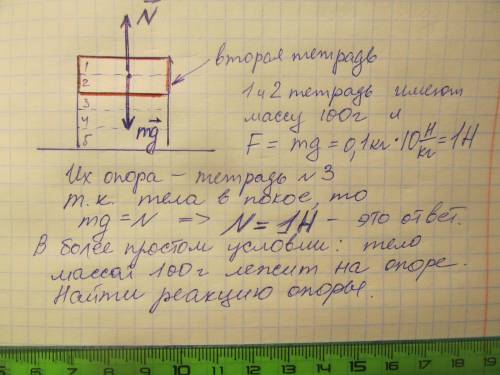 N
1
2
3
4
5
mg
вторая тетрадь
1 и 2 тетрадь имеют
массу 100г и
F = mg = 0,1кг·10 Н/кг = 1Н
Их опора – тетрадь №3
т.к. тела в покое, то
mg = N => N = 1Н – это ответ.
В более простом условии: тело
массой 100г лежит на опоре.
Найти реакцию опоры.
5 6 7 8 9 10 11 12 13 14 15 16 17 18 19